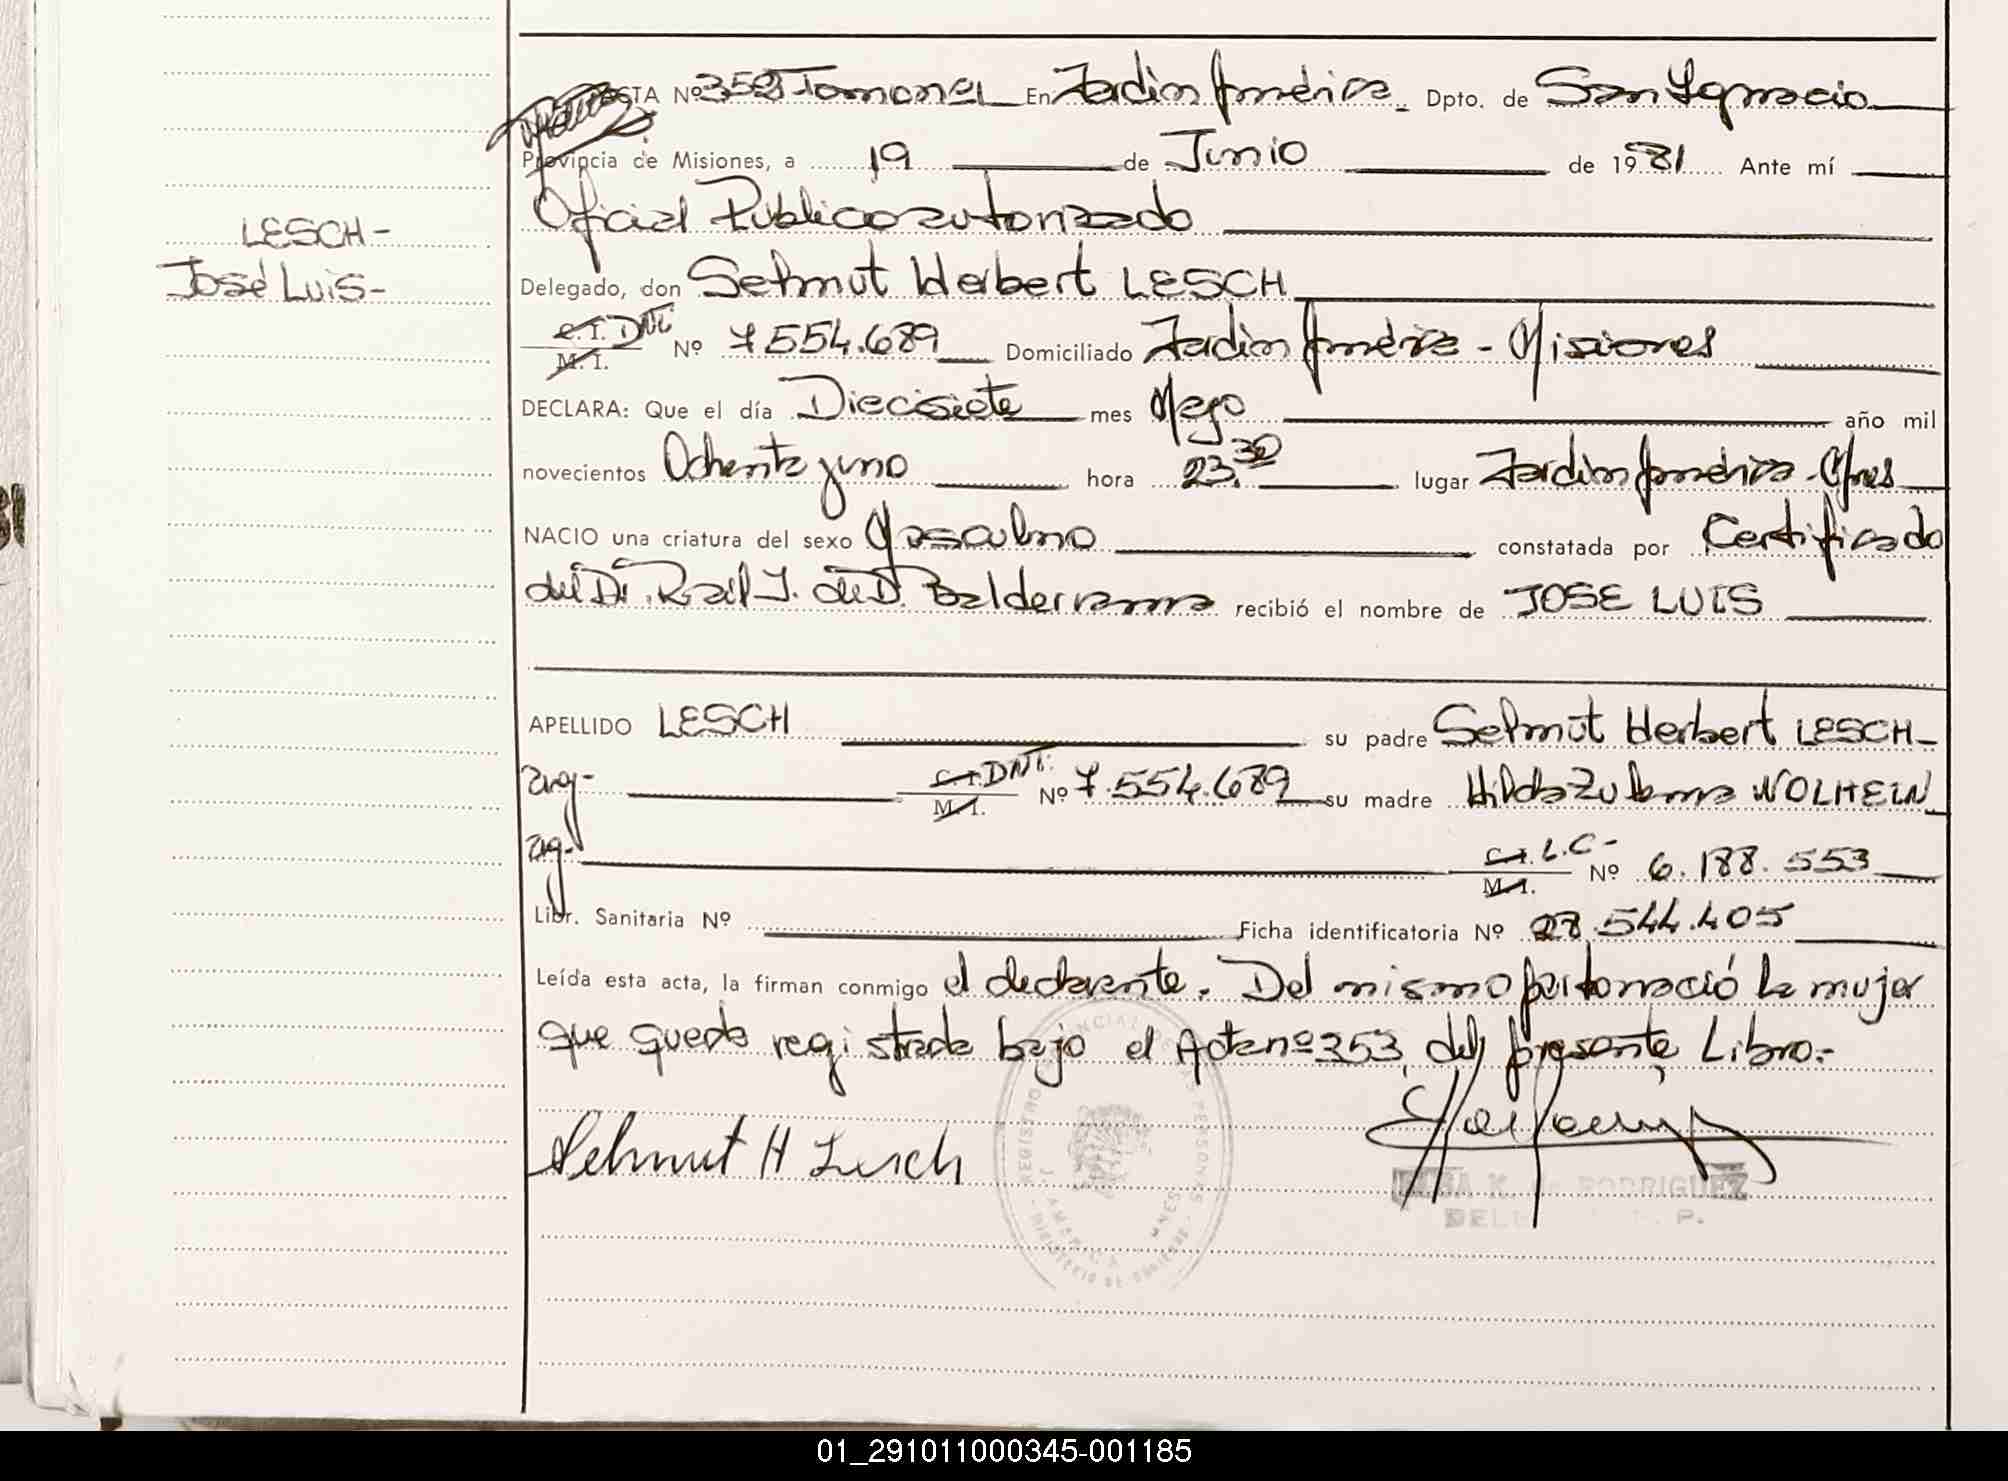 ACTA Nº 352 Tomo nº I En Jardín América. Dpto. de San Ignacio
Provincia de Misiones, a 19 de Junio de 1981 Ante mí
Oficial Publico autorizado
LESCH-
José Luis-
Delegado, don Selmut Herbert LESCH
C.I. DNI. M.I. Nº 7554.689 Domiciliado Jardín América - Misiones
DECLARA: Que el día Diecisiete mes Mayo año mil
novecientos Ochenta y uno hora 23.30 lugar Jardín América-Mnes
NACIO una criatura del sexo Masculino constatada por Certificado
del Dr. Raúl J. de D. Balderrama recibió el nombre de JOSE LUIS
APELLIDO LESCH su padre Selmut Herbert LESCH-
arg- C.I. DNI. M.I. Nº 7.554.689 su madre Hilda Zulema WOLHEIN
arg- C.I. L.C- M.I. Nº 6.188.553
Libr. Sanitaria Nº Ficha identificatoria Nº 28.544.405
Leída esta acta, la firman conmigo el declarante. Del mismo parto nació la mujer
que queda registrada bajo el Acta nº 353, del presente Libro.-
Selmut H Lesch
K. de RODRIGUEZ
01_291011000345-001185